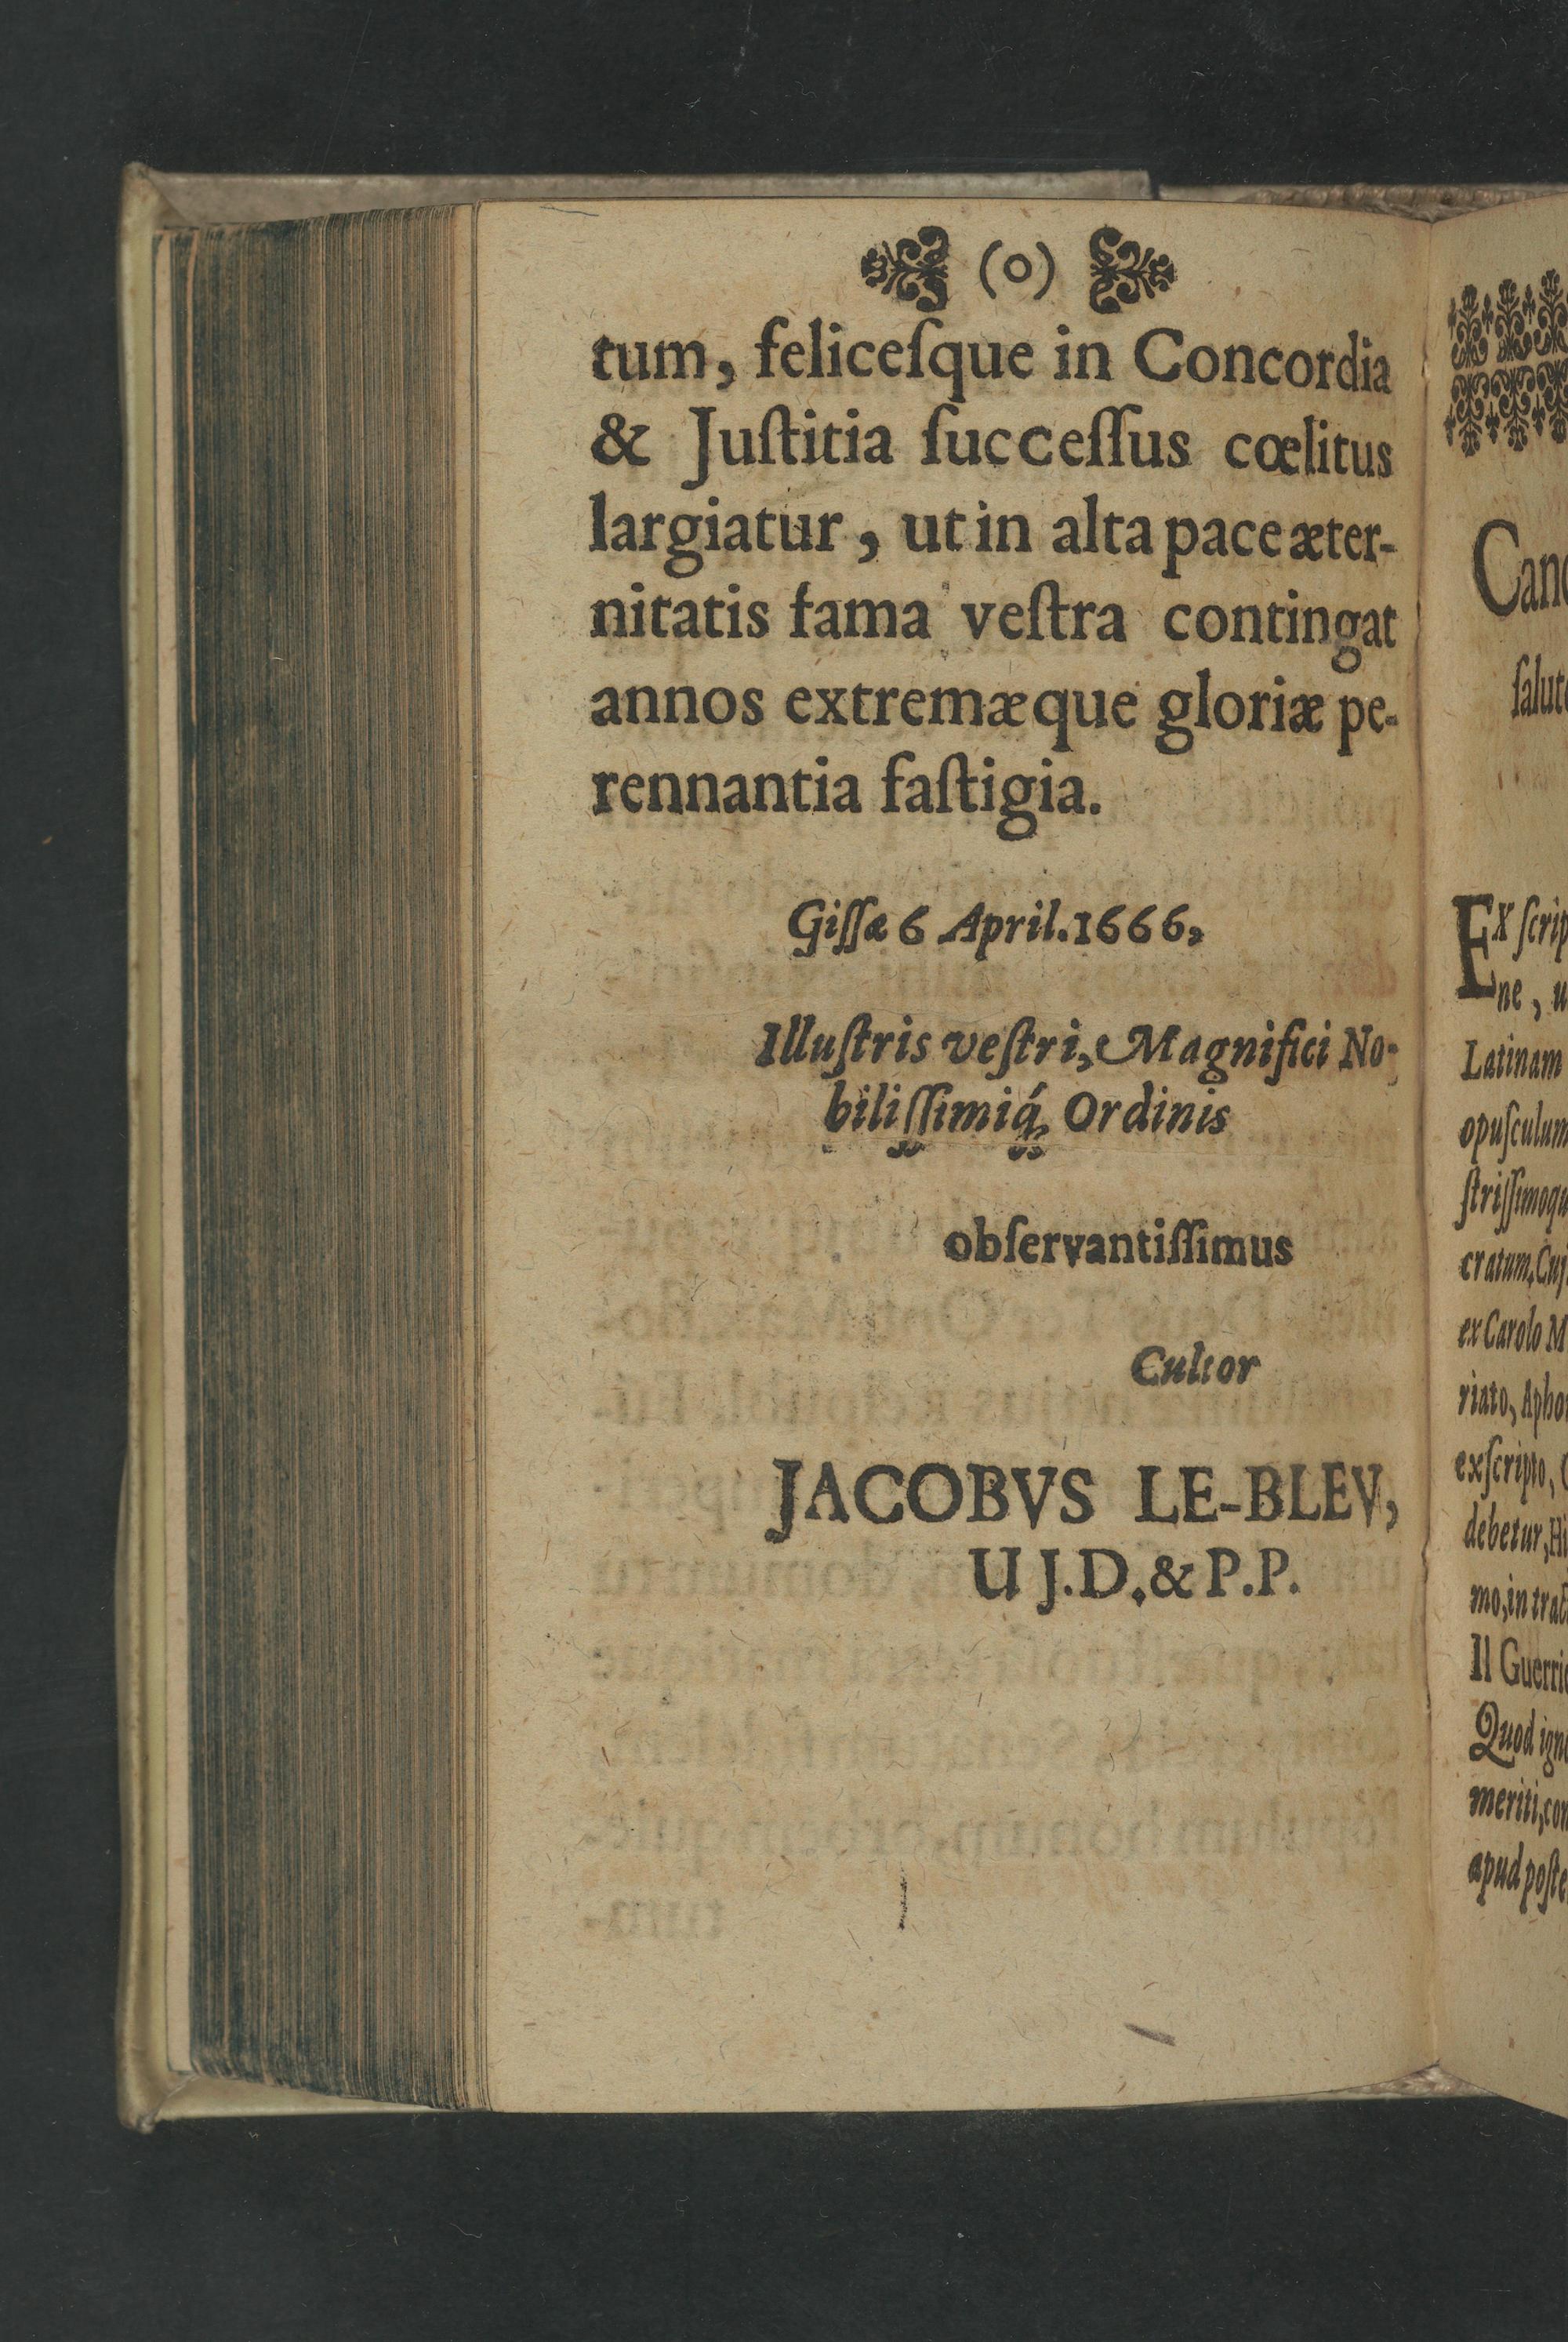 (o)
tum, feliceſque in Concordia
& Juſtitia ſucceſſus cœlitus
largiatur, ut in alta pace æter-
nitatis fama veſtra contingat
annos extremæque gloriæ pe-
rennantia faſtigia.
Giſſæ 6 April. 1666,
Illuſtris veſtri, Magnifici No-
biliſſimiq́; Ordinis
obſervantiſſimus
Cultor
JACOBVS LE-BLEV,
U J.D.& P.P.
Cano
ſalut
EX ſcrip
ne, u
Latinam
opuſculum
ſtriſſimoqu
cratum, Cuj
ex Carolo M
riato, Apho
exſcripto,
debetur, Hi
mo, in tra
Il Guerri
Quod igno
meriti, con
apud poſte